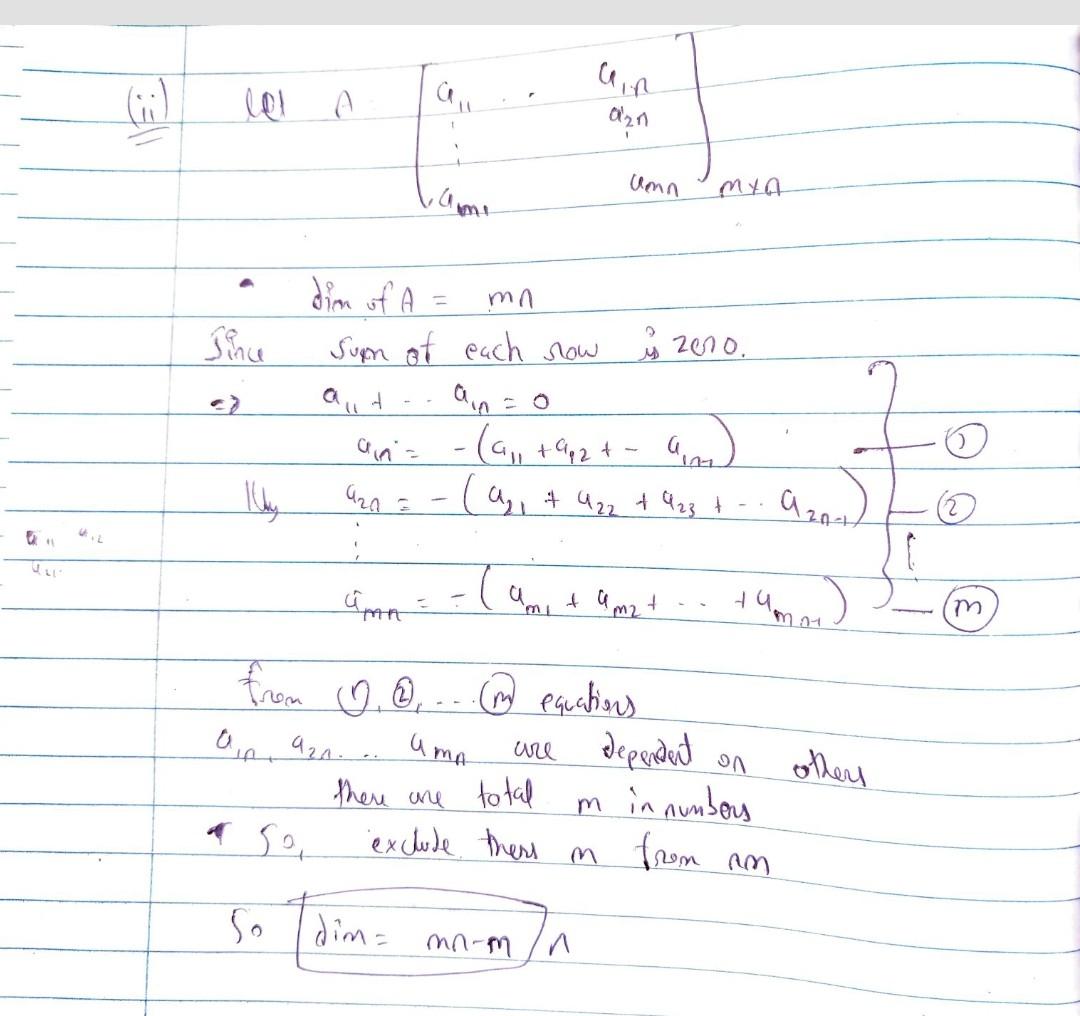 (ii) let A [ a11 .. a1n
a2n
am1 amn ] m×n
dim of A = mn
Since sum of each row is zero.
=> a11 + -- a1n = 0
a1n = - (a11 + a12 + - a1n-1) — ①
llly a2n = - ( a21 + a22 + a23 + -.. a2n-1) — ②
a11 a12
a21
amn = - ( am1 + am2 + .. + amn-1 ) — ⓜ
from ①, ②, --.. ⓜ equations
a1n, a2n... amn are dependent on others
there are total m in numbers
So, exclude thers m from nm
So dim = mn-m /n